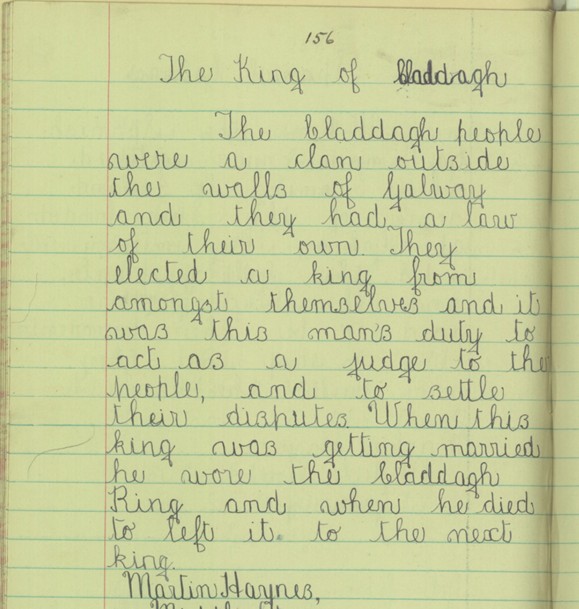 156
The King of Claddagh
The Claddagh people
were a clan outside
the walls of Galway
and they had a law
of their own. They
elected a king from
amongst themselves and it
was this man's duty to
act as a judge to the
people, and to settle
their disputes. When this
king was getting married
he wore the Claddagh
Ring and when he died
to left it. to the next
king.
Martin Haynes,